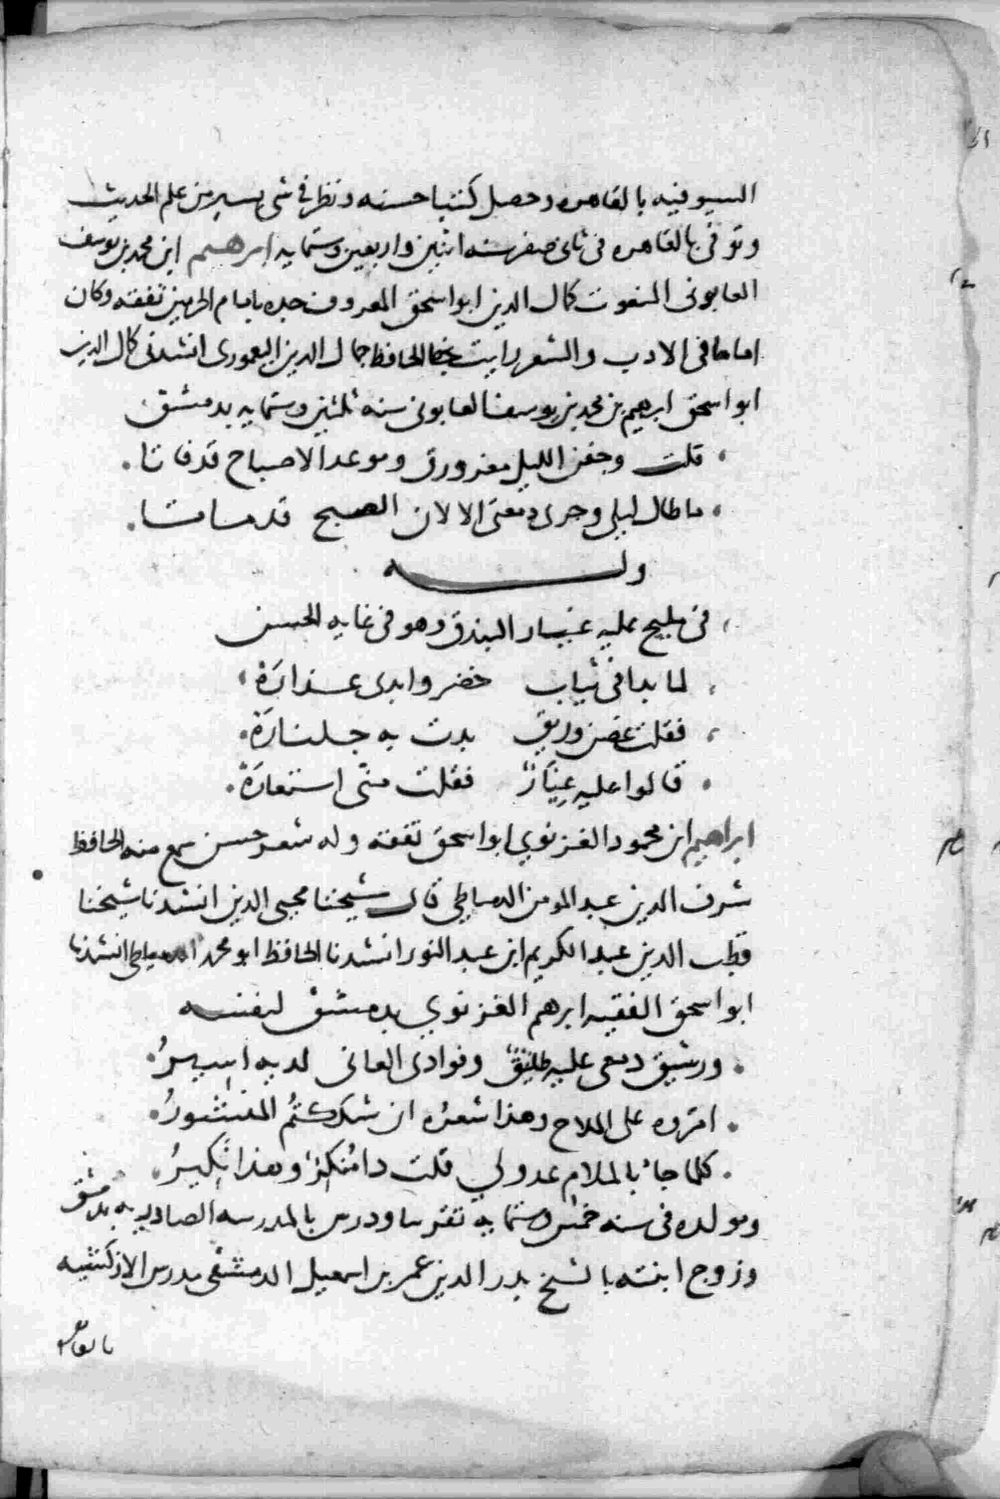 السيوفيه بالقاهره وحصل كتبا حسنه ونظر في شي يسير من علم الحديث
وتوفي بالقاهره في ثاني صفر سنه اثنين واربعين وستمايه ابرهيم ابن محمد بن يوسف
المنعوت كمال الدين ابو اسحق المعروف جده بامام الحرمين تفقه وكان
اماما في الادب والشعر رايت بخط الحافظ جمال الدين اليغموري انشدني كمال الدين
ابو اسحق ابرهيم بن محمد بن يوسف سنه ثلثين وستمايه بدمشق
قلت وجفن الليل مغرورق وموعد الاصباح قد فاتا
ما طال ليلي وجرى دمعتي الا لان الصبح قد ماتا
وله
في مليح عليه غيار البندق وهو في غايه الحسن
لما بدا في ثياب خضر وابدى عذاره
فقلت غصن وريق بدت به جلناره
قالوا عليه غيار فقلت مني استعاره
ابراهيم ابن محمود الغزنوي ابو اسحق تفقه وله شعر حسن سمع منه الحافظ
شرف الدين عبد المومن الدمياطي قال شيخنا محيي الدين انشدنا شيخنا
قطب الدين عبد الكريم ابن عبد النور انشدنا الحافظ ابو محمد الدمياطي انشدنا
ابو اسحق الفقيه ابرهم الغزنوي بدمشق لنفسه
ورشيق دمعي عليه طليق وفوادي العاني لديه اسير
على الملاح وهذا شعره ان شككتم المنشور
كلما جا بالملام عدولي قلت دا منكر وهذا نكير
ومولده في سنه خمس وستمايه ودرس بالمدرسه الصادريه بدمشق
وزوج ابنته بالشيخ بدر الدين عمر بن اسمعيل الدمشقي مدرس الازكشيه
بالقاهره